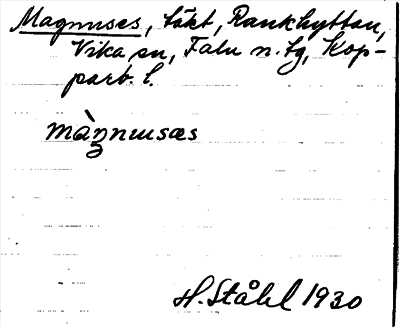 Magnusas, täkt, Rankhyttan,
Vika sn, Falu n. tg, Kop-
parb. l.
màŋnusas
H. Ståhl 1930